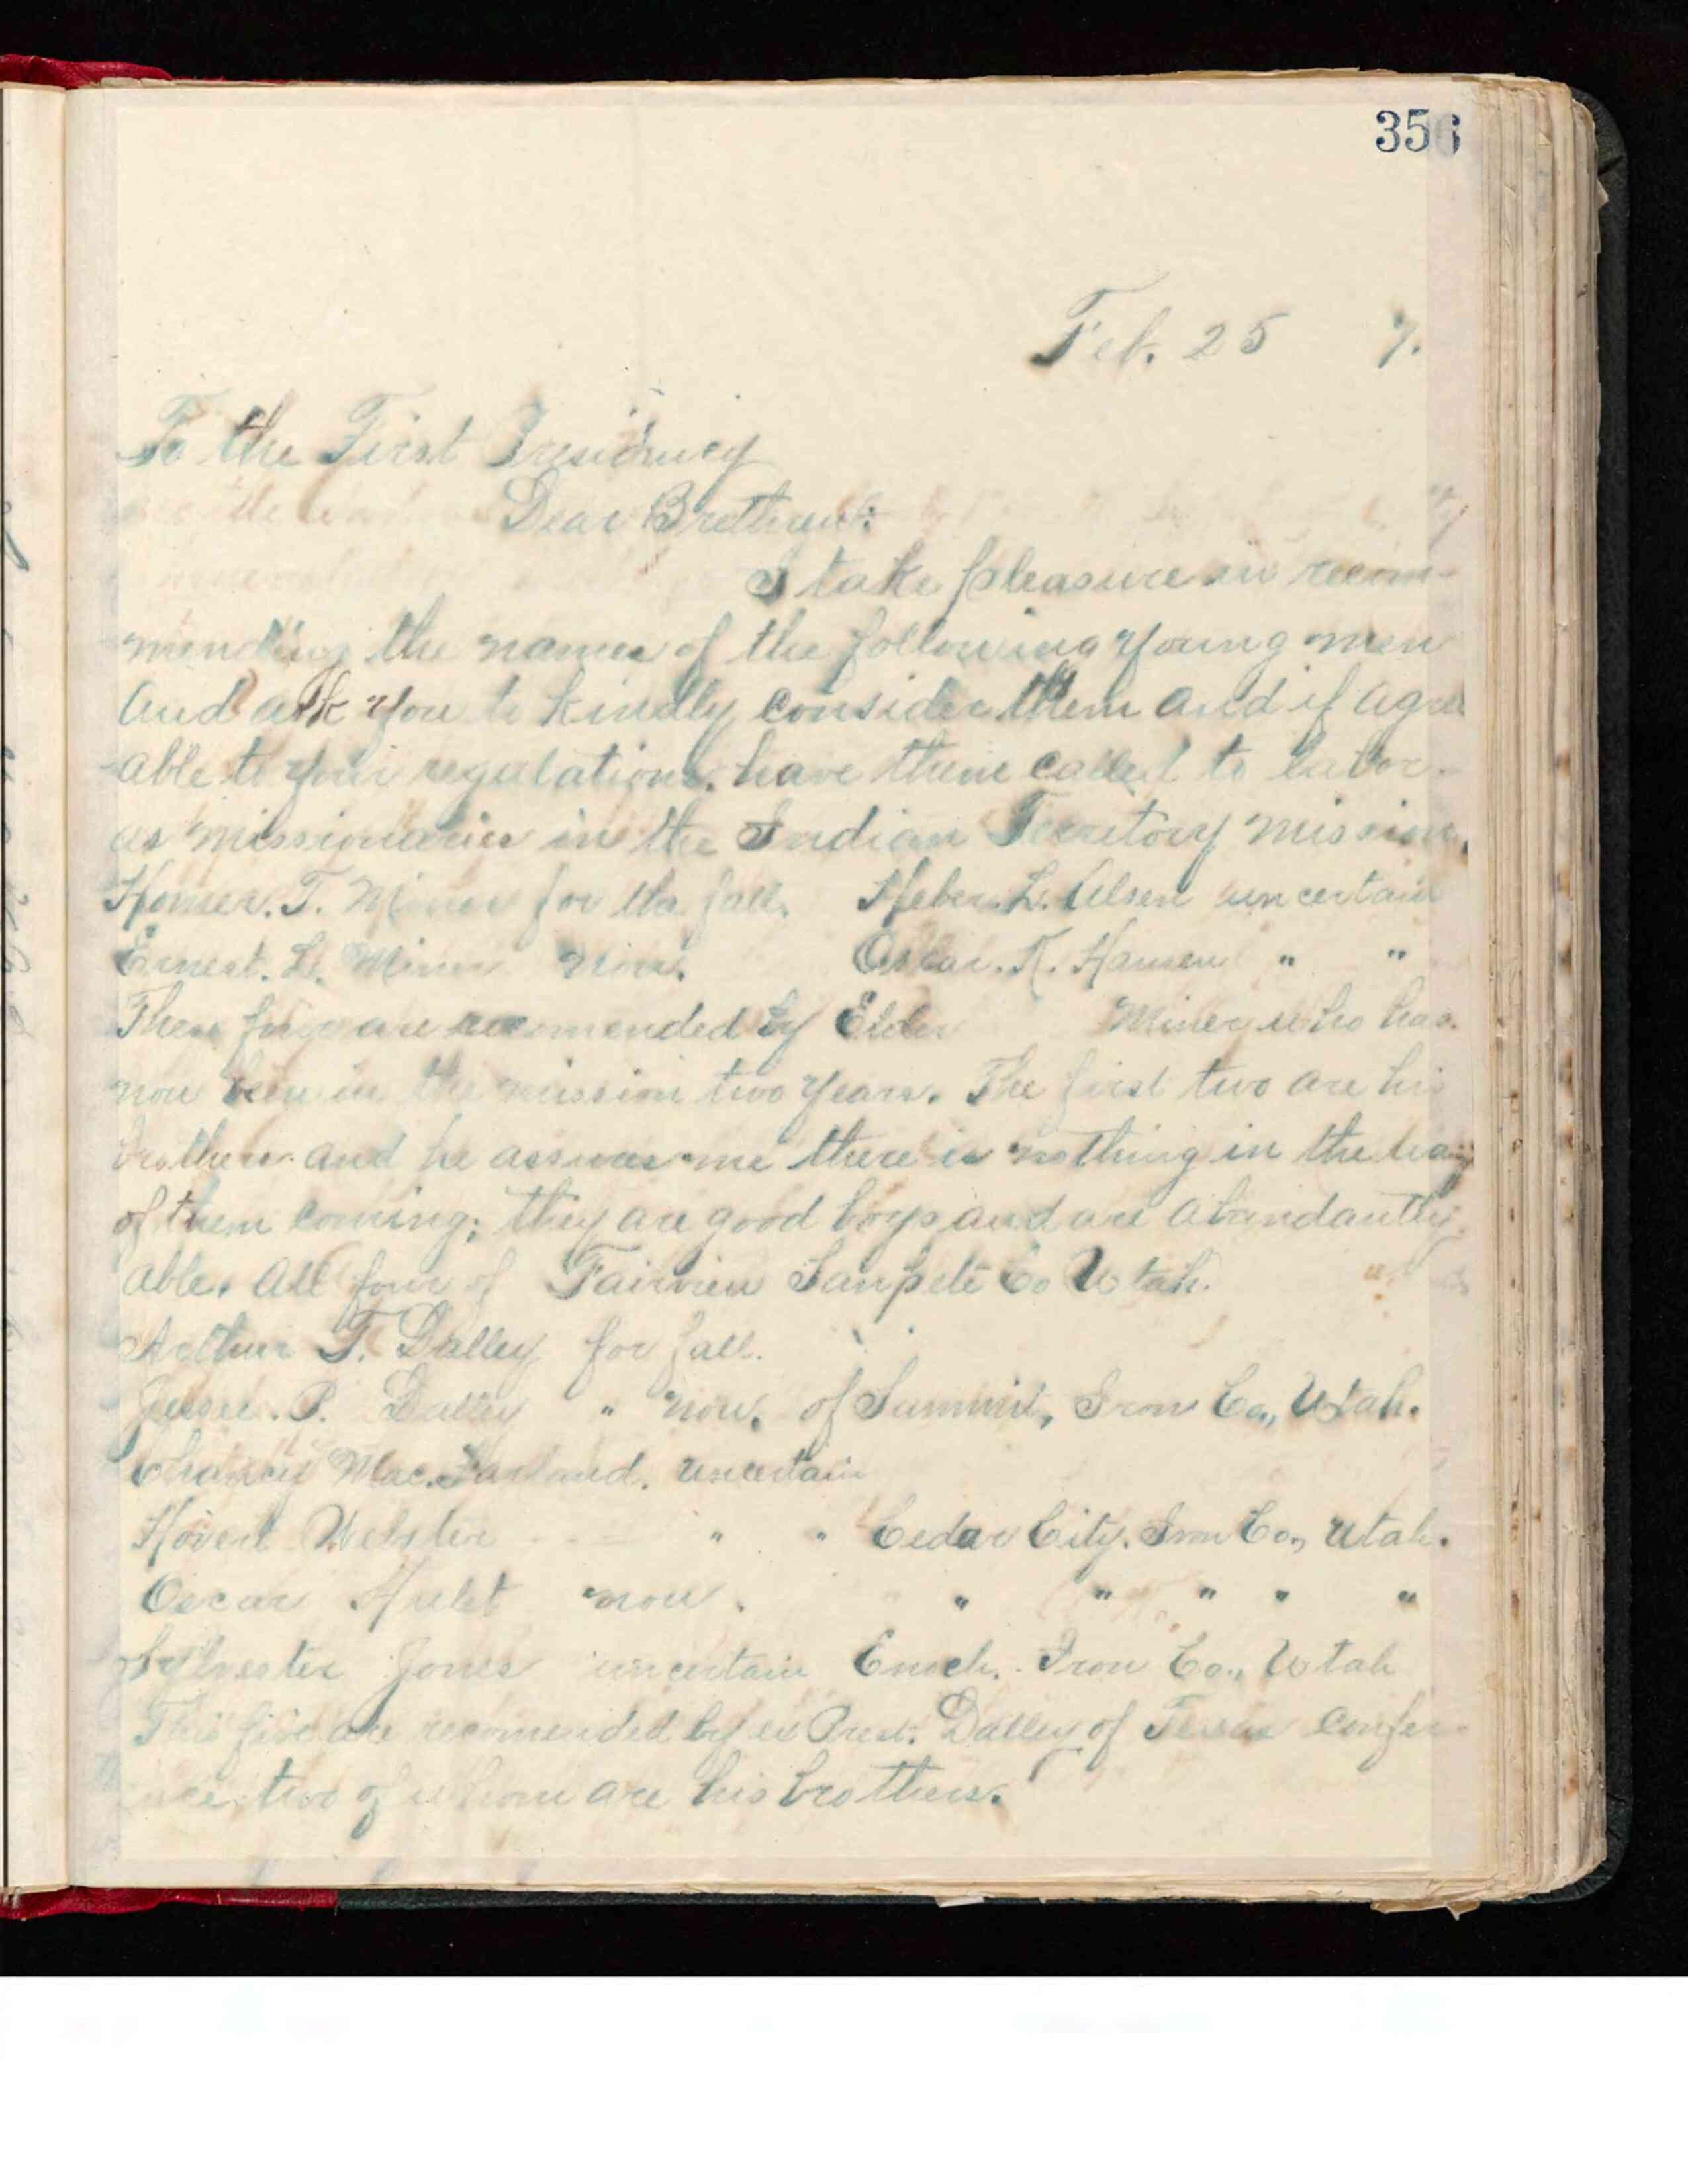 356
Feb. 25 7.
To the First Presidency
Dear Brethren:
I take pleasure in recom-
mending the names of the following young men
and ask you to kindly consider them and if agree
able to your regulations, have them called to labor
as missionaries in the Indian Territory mission.
Homer. T. Miner for the fall. Heber. L. Olsen uncertain
Ernest. L. Miner now. Oscar. R. Hansen " "
These four are recomended by Elder Miner who has
now been in the mission two years. The first two are his
brothers and he assures me there is nothing in the way
of them coming; they are good boys and are abundantly
able. All four of Fairview Sanpete Co Utah.
Arthur T. Dalley for fall.
Jesse. P. Dalley " now. of Summit, Iron Co., Utah.
Mac. Farland. uncertain
Webster " " Cedar City. Iron Co., Utah.
Oscar Hulet now. " " " " "
Sylvester Jones uncertain Enoch. Iron Co., Utah
This five are recomended by ex Prest. Dalley of Texas confer-
ence, two of whom are his brothers.